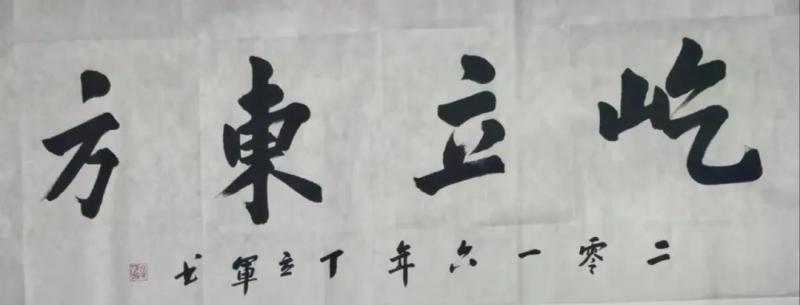 屹立東方
二零一六年丁立軍书